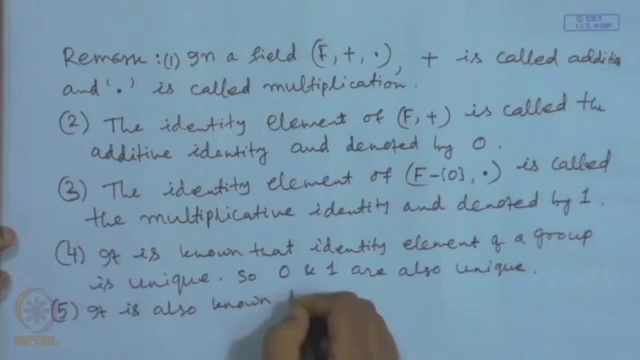 © CET
I.I.T. KGP
Remark : (1) In a field (F, +, ·), + is called additi
and '·' is called multiplication.
(2) The identity element of (F, +) is called the
additive identity and denoted by 0.
(3) The identity element of (F-{0}, ·) is called
the multiplicative identity and denoted by 1.
(4) It is known that identity element of a group
is unique. So 0 & 1 are also unique.
(5) It is also known
NPTEL